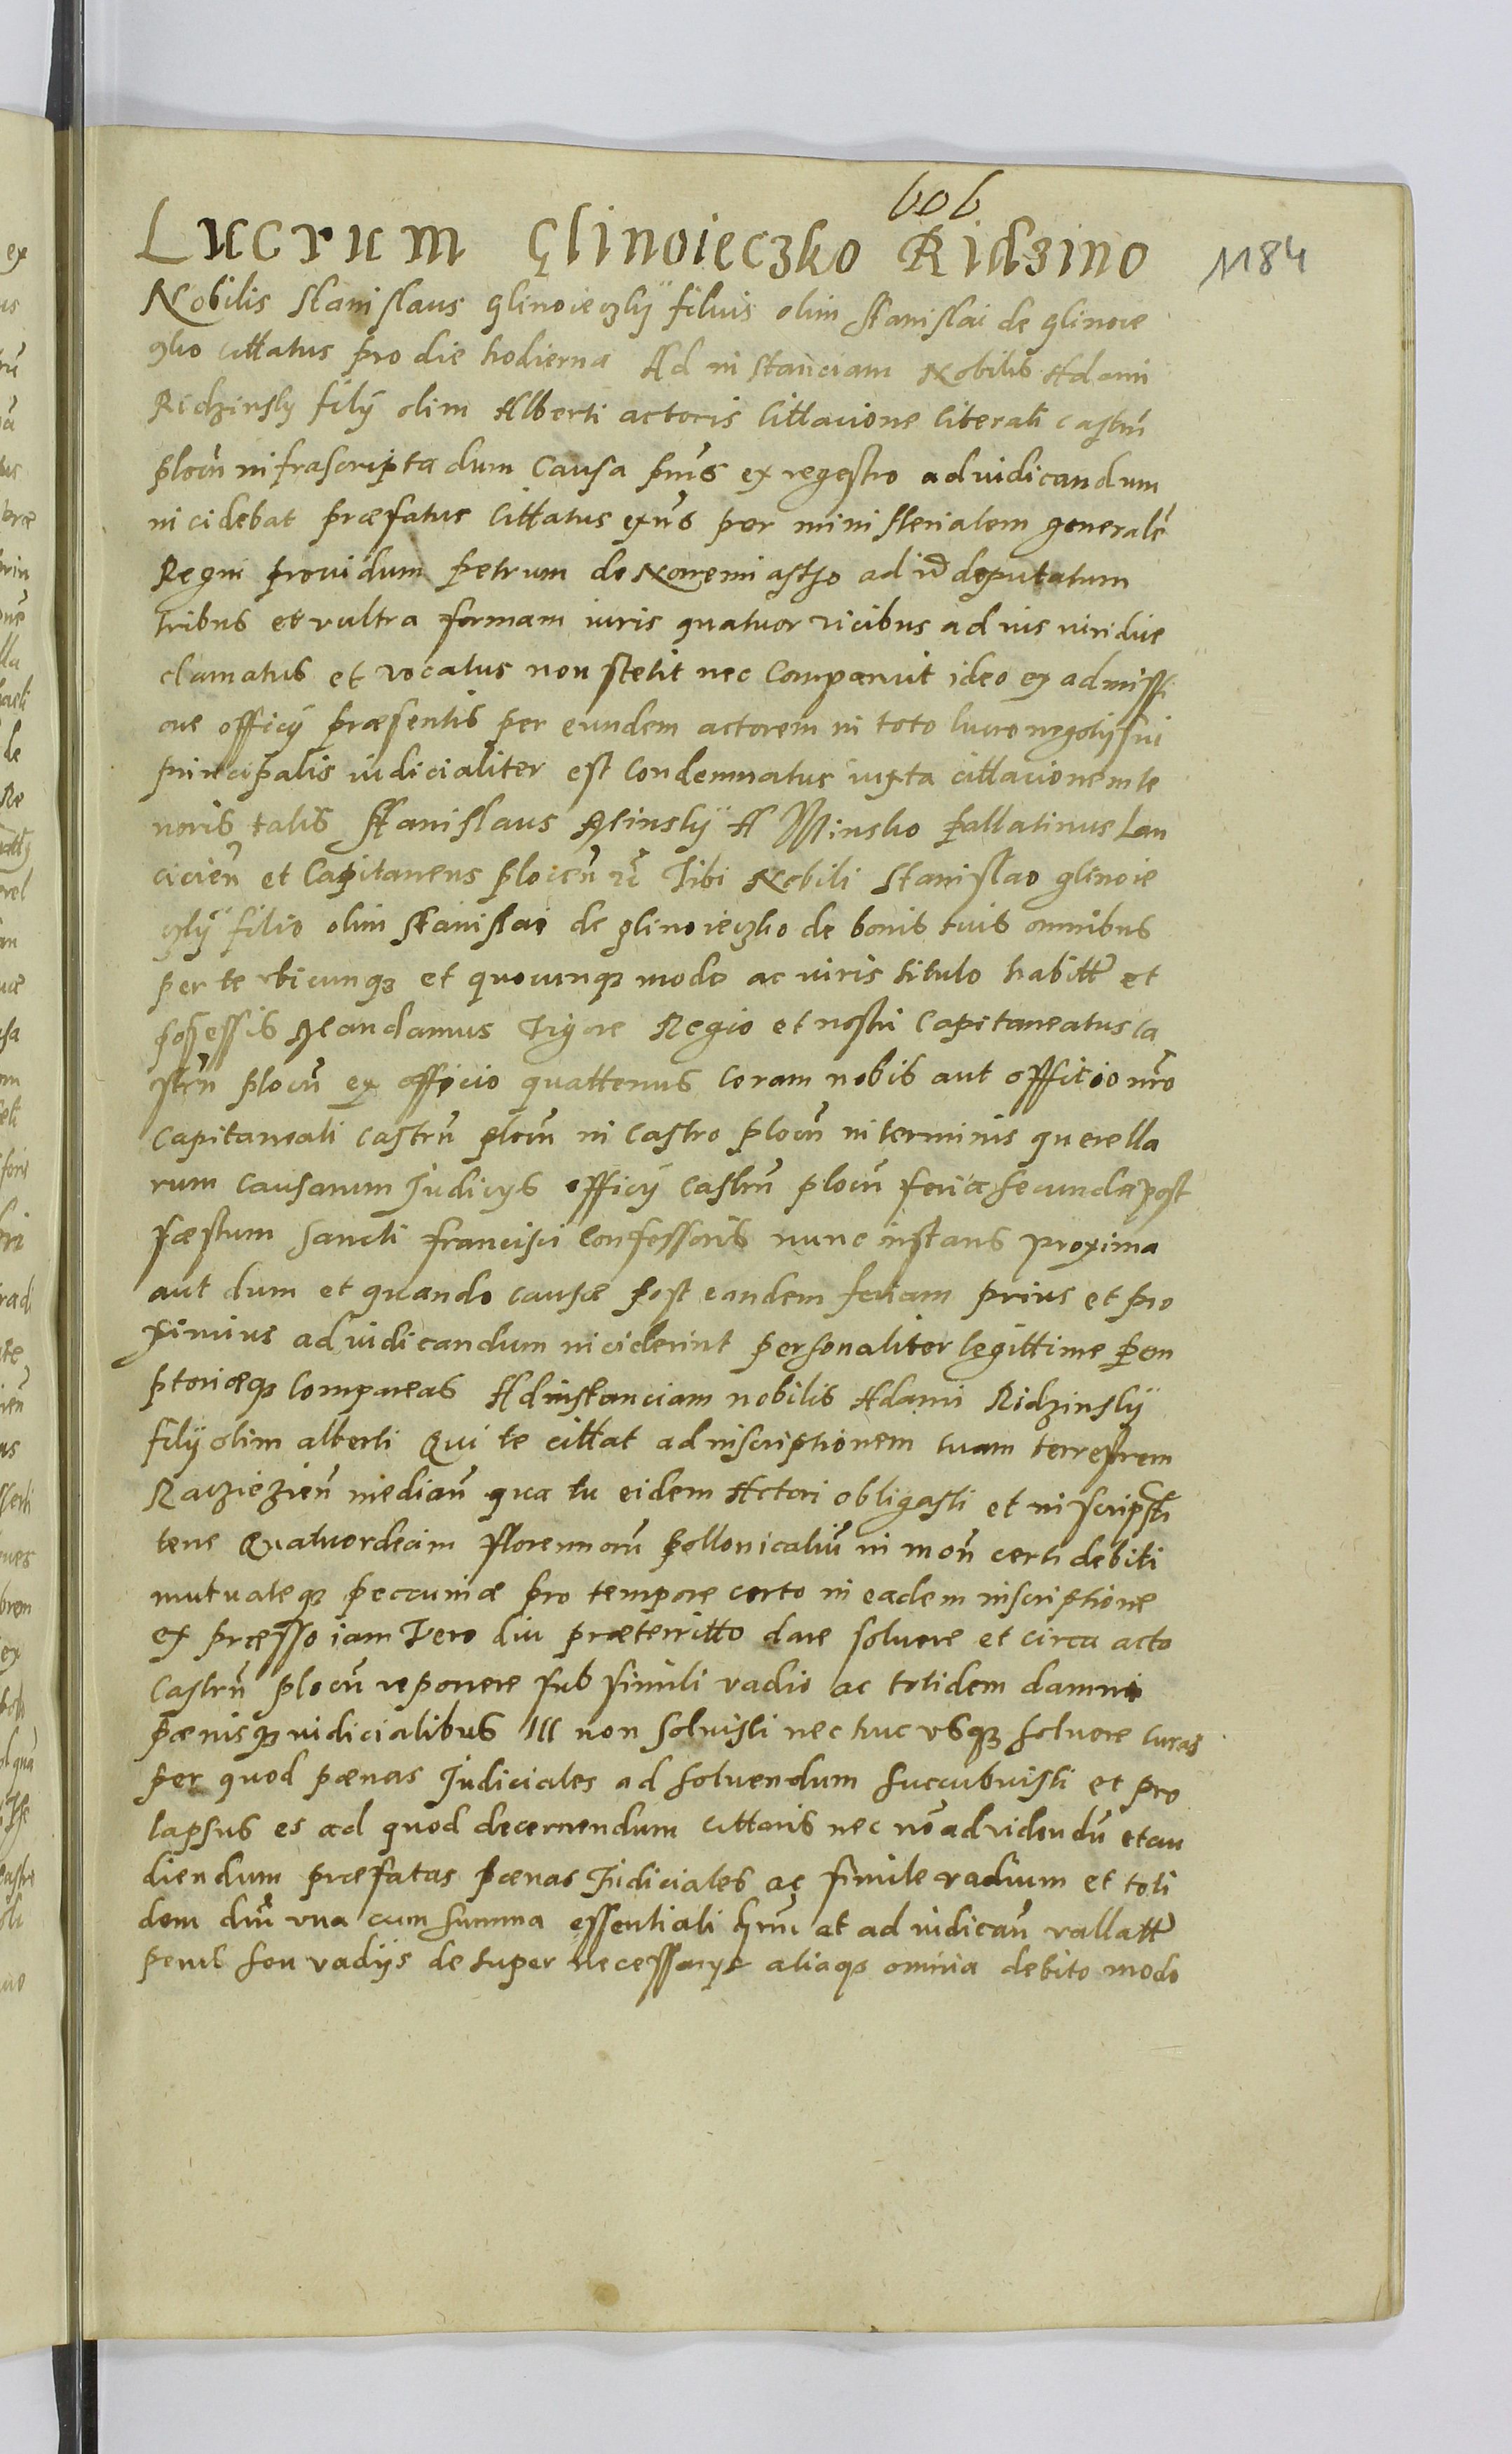 606
Lucrum Glinoieczko Ridzino
1184
Nobilis Stanislaus Glinoieczkij filius olim Stanislai de Glinoie
czko cittatus pro die hodierna Ad instanciam Nobilis Adami
Ridzinsky filij olim Alberti actoris Cittacione literali castrn̄
plocn̄ infrascripta dum Causa pn̄s ex regestro ad iudicandum
incidebat præfatus Cittatus exn̄s per ministerialem generalē
Regni providum Petrum de Novemiasto ad id deputatum
tribus et vultra formam iuris quatuor vicibus ad ius iuridice
clamatus et vocatus non stetit nec Comparuit ideo ex admissi
one officij præsentis per eundem actorem in toto lucro negotij sui
principalis iudicialiter est Condemnatus iuxta cittacionem te
noris talis Stanislaus Minskij A Minsko Pallatinus Lan
cicien̄ et Capitaneus plocen̄ etc̄ Tibi Nobili Stanislao Glinoie
czkij filio olim Stanislai de Glinoieczko de bonis tuis omnibus
per te vbicunqꝫ et quocunqꝫ modo ac iuris titulo habitt̄ et
possessis Mandamus Vigore Regio et nostri Capitaneatus ca
strn̄ plocn̄ ex officio quattenus Coram nobis aut officio nr̄o
Capitaneali castrn̄ plocn̄ in Castro plocn̄ in terminis querella
rum Causarum Judicijs officij castrn̄ plocn̄ feria secunda post
fæstum Sancti Francisci Confessoris nunc instans proxima
aut dum et quando causæ post eandem feriam prius et pro
ximius ad iudicandum inciderint personaliter legittime Peren
ptoriæqꝫ Compareas Ad instanciam nobilis Adami Ridzinskij
filij olim alberti Qui te cittat ad inscriptionem tuam terrestrem
Raczięzien̄ median̄ qua tu eidem Actori obligasti et inscripsti
tene Quatuordecim florennorū Pollonicaliū in mon̄ certi debiti
mutuateqꝫ peccuniæ pro tempore certo in eadem inscriptione
expræsso iam Vero diu præterritto dare soluere et circa acta
Castrn̄ plocn̄ reponere sub simili vadio ac totidem damni
pænisqꝫ iudicialibus Ill non soluisti nec huc vsqꝫ soluere curas
per quod pænas Judiciales ad soluendum succubuisti et pro
lapsus es ad quod decernendum cittaris nec nō ad videndū et au
diendum præfatas pænas Judiciales ac simile vadium et toti
dem dn̄i vna cum summa essentiali et ad iudican̄ vallatt̄
penil seu vadijs desuper necessarijs aliaqꝫ omnia debito modo